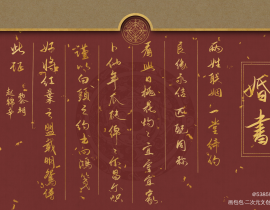 婚書
两姓联姻 一堂缔约
良缘永结 匹配同称
看此日桃花灼灼 宜室宜家
卜他年瓜瓞绵绵 尔昌尔炽
谨以白头之约 书向鸿笺
好将红叶之盟 载明鸳谱
此证
黎朔
赵锦辛